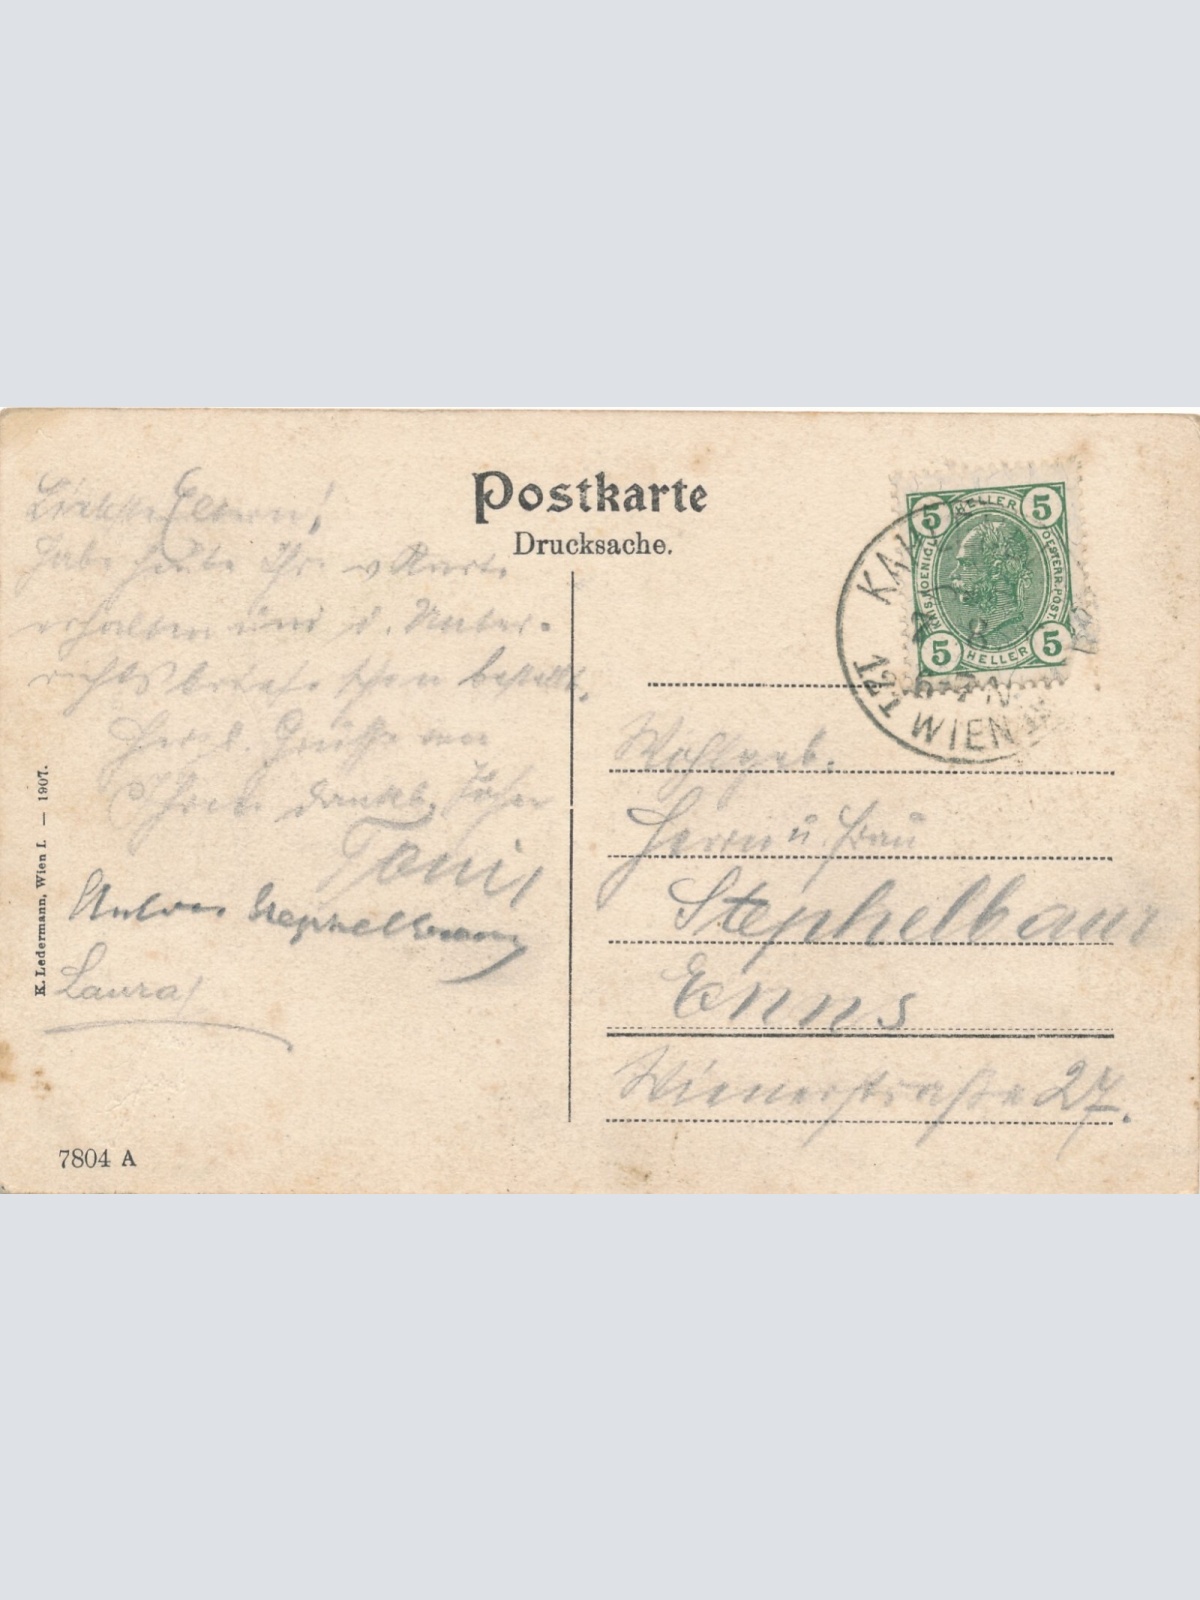 Postkarte
Drucksache.
Liebste Eltern!
Habe heute Ihre Karte
erhalten und d. Unter-
richtsbriefe schon bestellt.
Herzl. Grüsse von
Ihren dankb.
Toni,
Anton Stephelbauer
Laura
K. Ledermann, Wien I. — 1907.
7804 A
5 HELLER 5
KAIS. KOENIGL. OESTERR. POST.
5 HELLER 5
12/1
WIEN
Wohlgeb.
Herrn u. Frau
Stephelbaur
Enns
Wienerstraße 27.